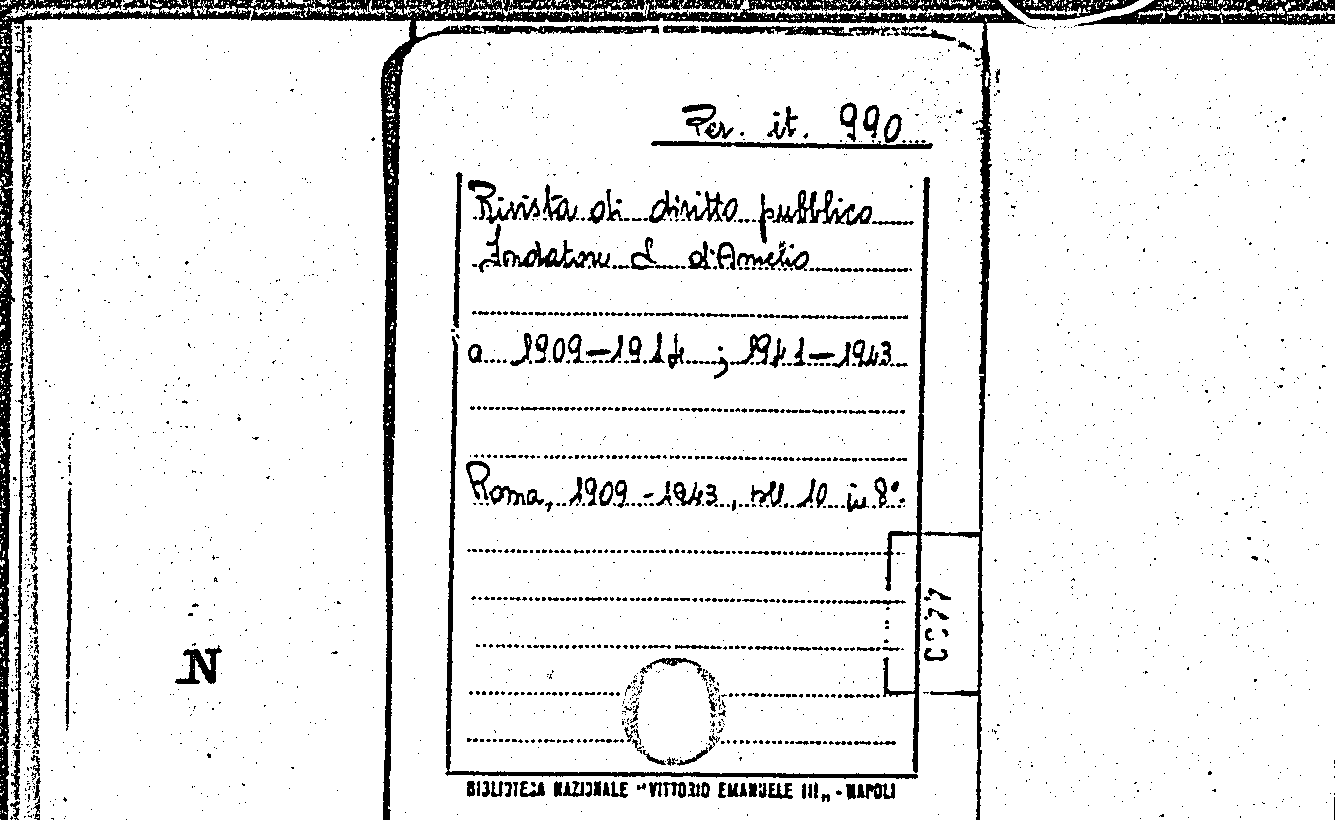 Per. it. 990
Rivista di diritto pubblico
Fondatore S d'Amelio
a 1909-1914 ; 1941-1943
Roma, 1909-1943, voll. 10 in 8°.
N
BIBLIOTECA NAZIONALE "VITTORIO EMANUELE III„ - NAPOLI